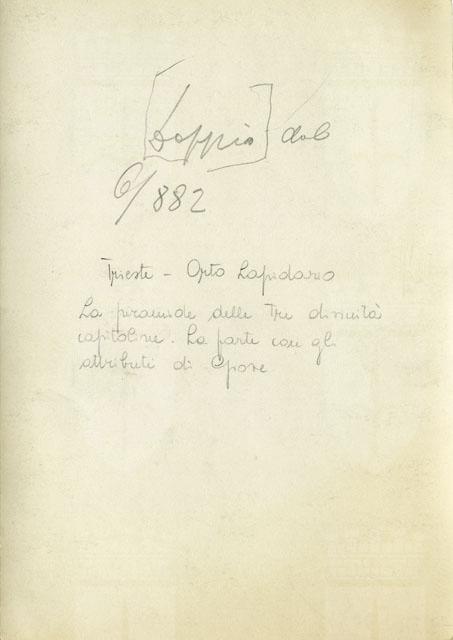 [Doppia] dal
6/882
Trieste - Orto Lapidario
La piramide delle Tre divinità
capitoline. La parte con gli
attributi di Giove